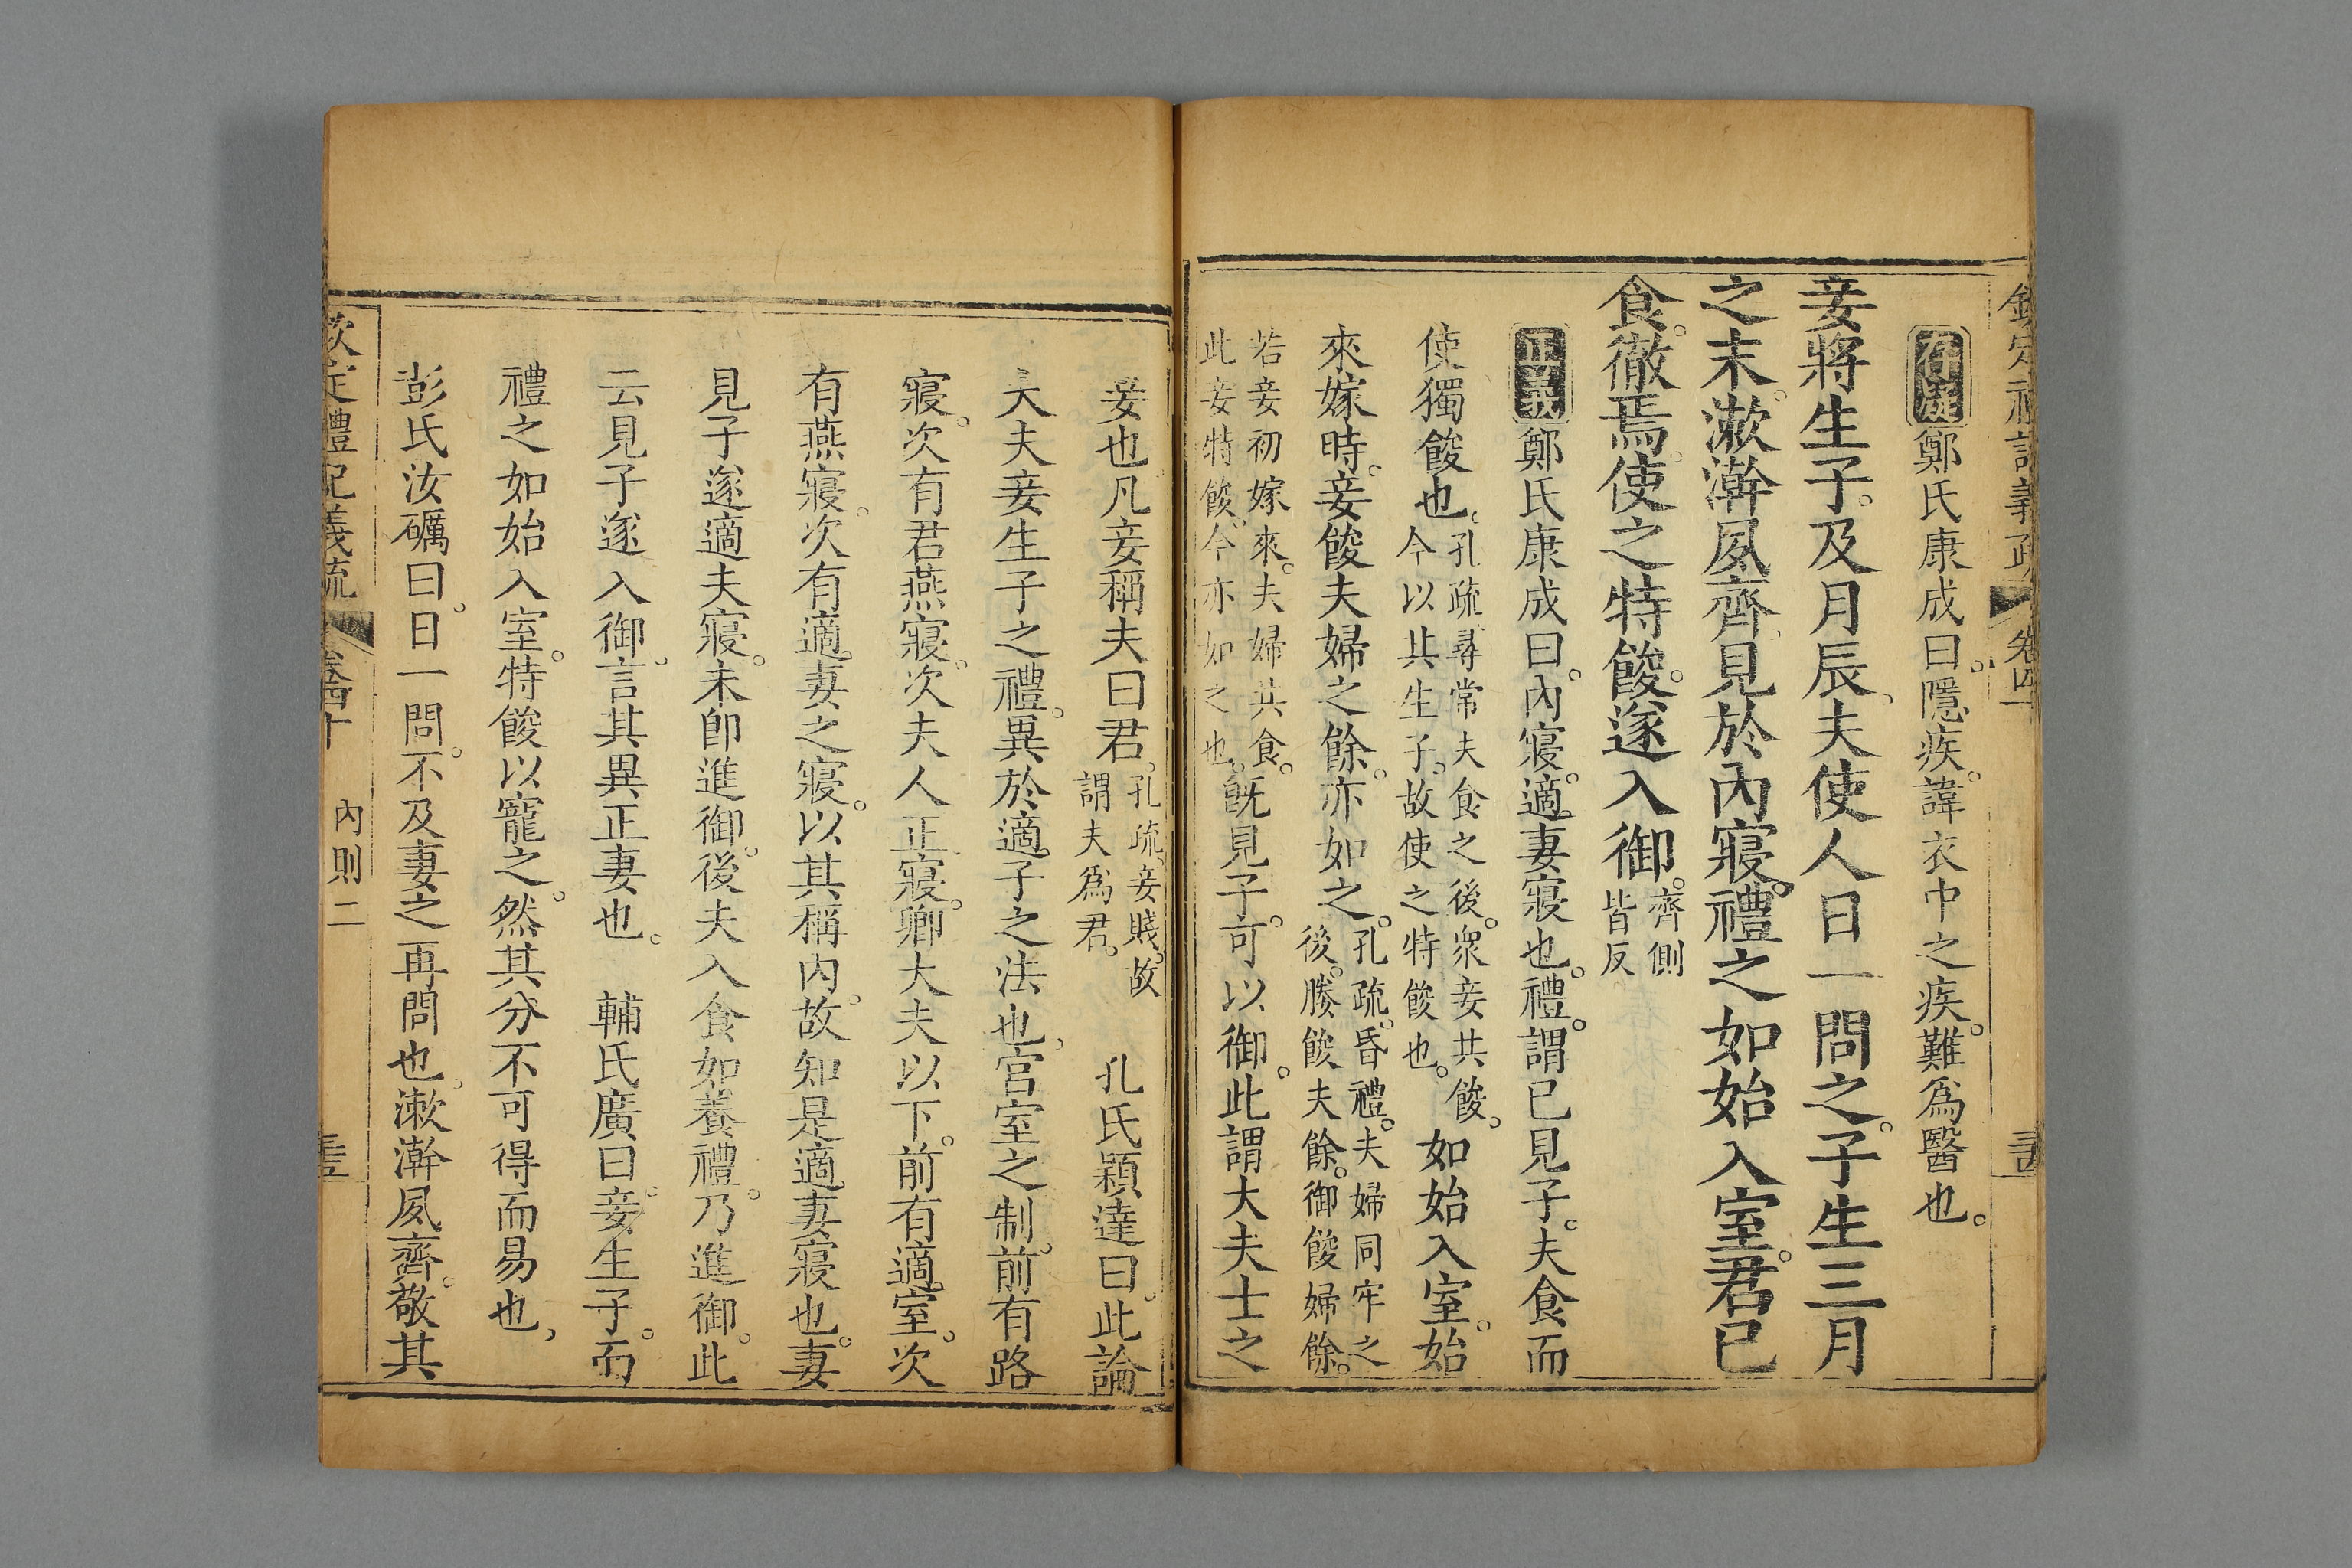 欽定禮記義疏 卷四十
存疑 鄭氏康成曰。隱疾。諱衣中之疾。難為醫也。
妾將生子。及月辰。夫使人日一問之。子生三月
之末。漱澣夙齊。見於內寢。禮之如始入室。君已
食。徹焉。使之特餕。遂入御。齊側皆反
正義 鄭氏康成曰。內寢。適妻寢也。禮。謂已見子。夫食而
使獨餕也。孔疏。尋常夫食之後。衆妾共餕。今以其生子。故使之特餕也。如始入室。始
來嫁時。妾餕夫婦之餘。亦如之。孔疏。昏禮。夫婦同牢之後。媵餕夫餘。御餕婦餘。
若妾初嫁來。夫婦共食。此妾特餕。今亦如之也。旣見子。可以御。此謂大夫士之
妾也。凡妾稱夫曰君。孔疏。妾賤。故謂夫爲君。 孔氏穎達曰。此論
大夫妾生子之禮。異於適子之法也。宫室之制。前有路
寢。次有君燕寢。次夫人正寢。卿大夫以下。前有適室。次
有燕寢。次有適妻之寢。以其稱内。故知是適妻寢也。妻
見子遂適夫寢。未卽進御。後夫入食如養禮。乃進御。此
云見子遂入御。言其異正妻也。 輔氏廣曰。妾生子。而
禮之如始入室。特餕以寵之。然其分不可得而易也。
彭氏汝礪曰。日一問。不及妻之再問也。漱澣夙齊。敬其
欽定禮記義疏 卷四十 内則二